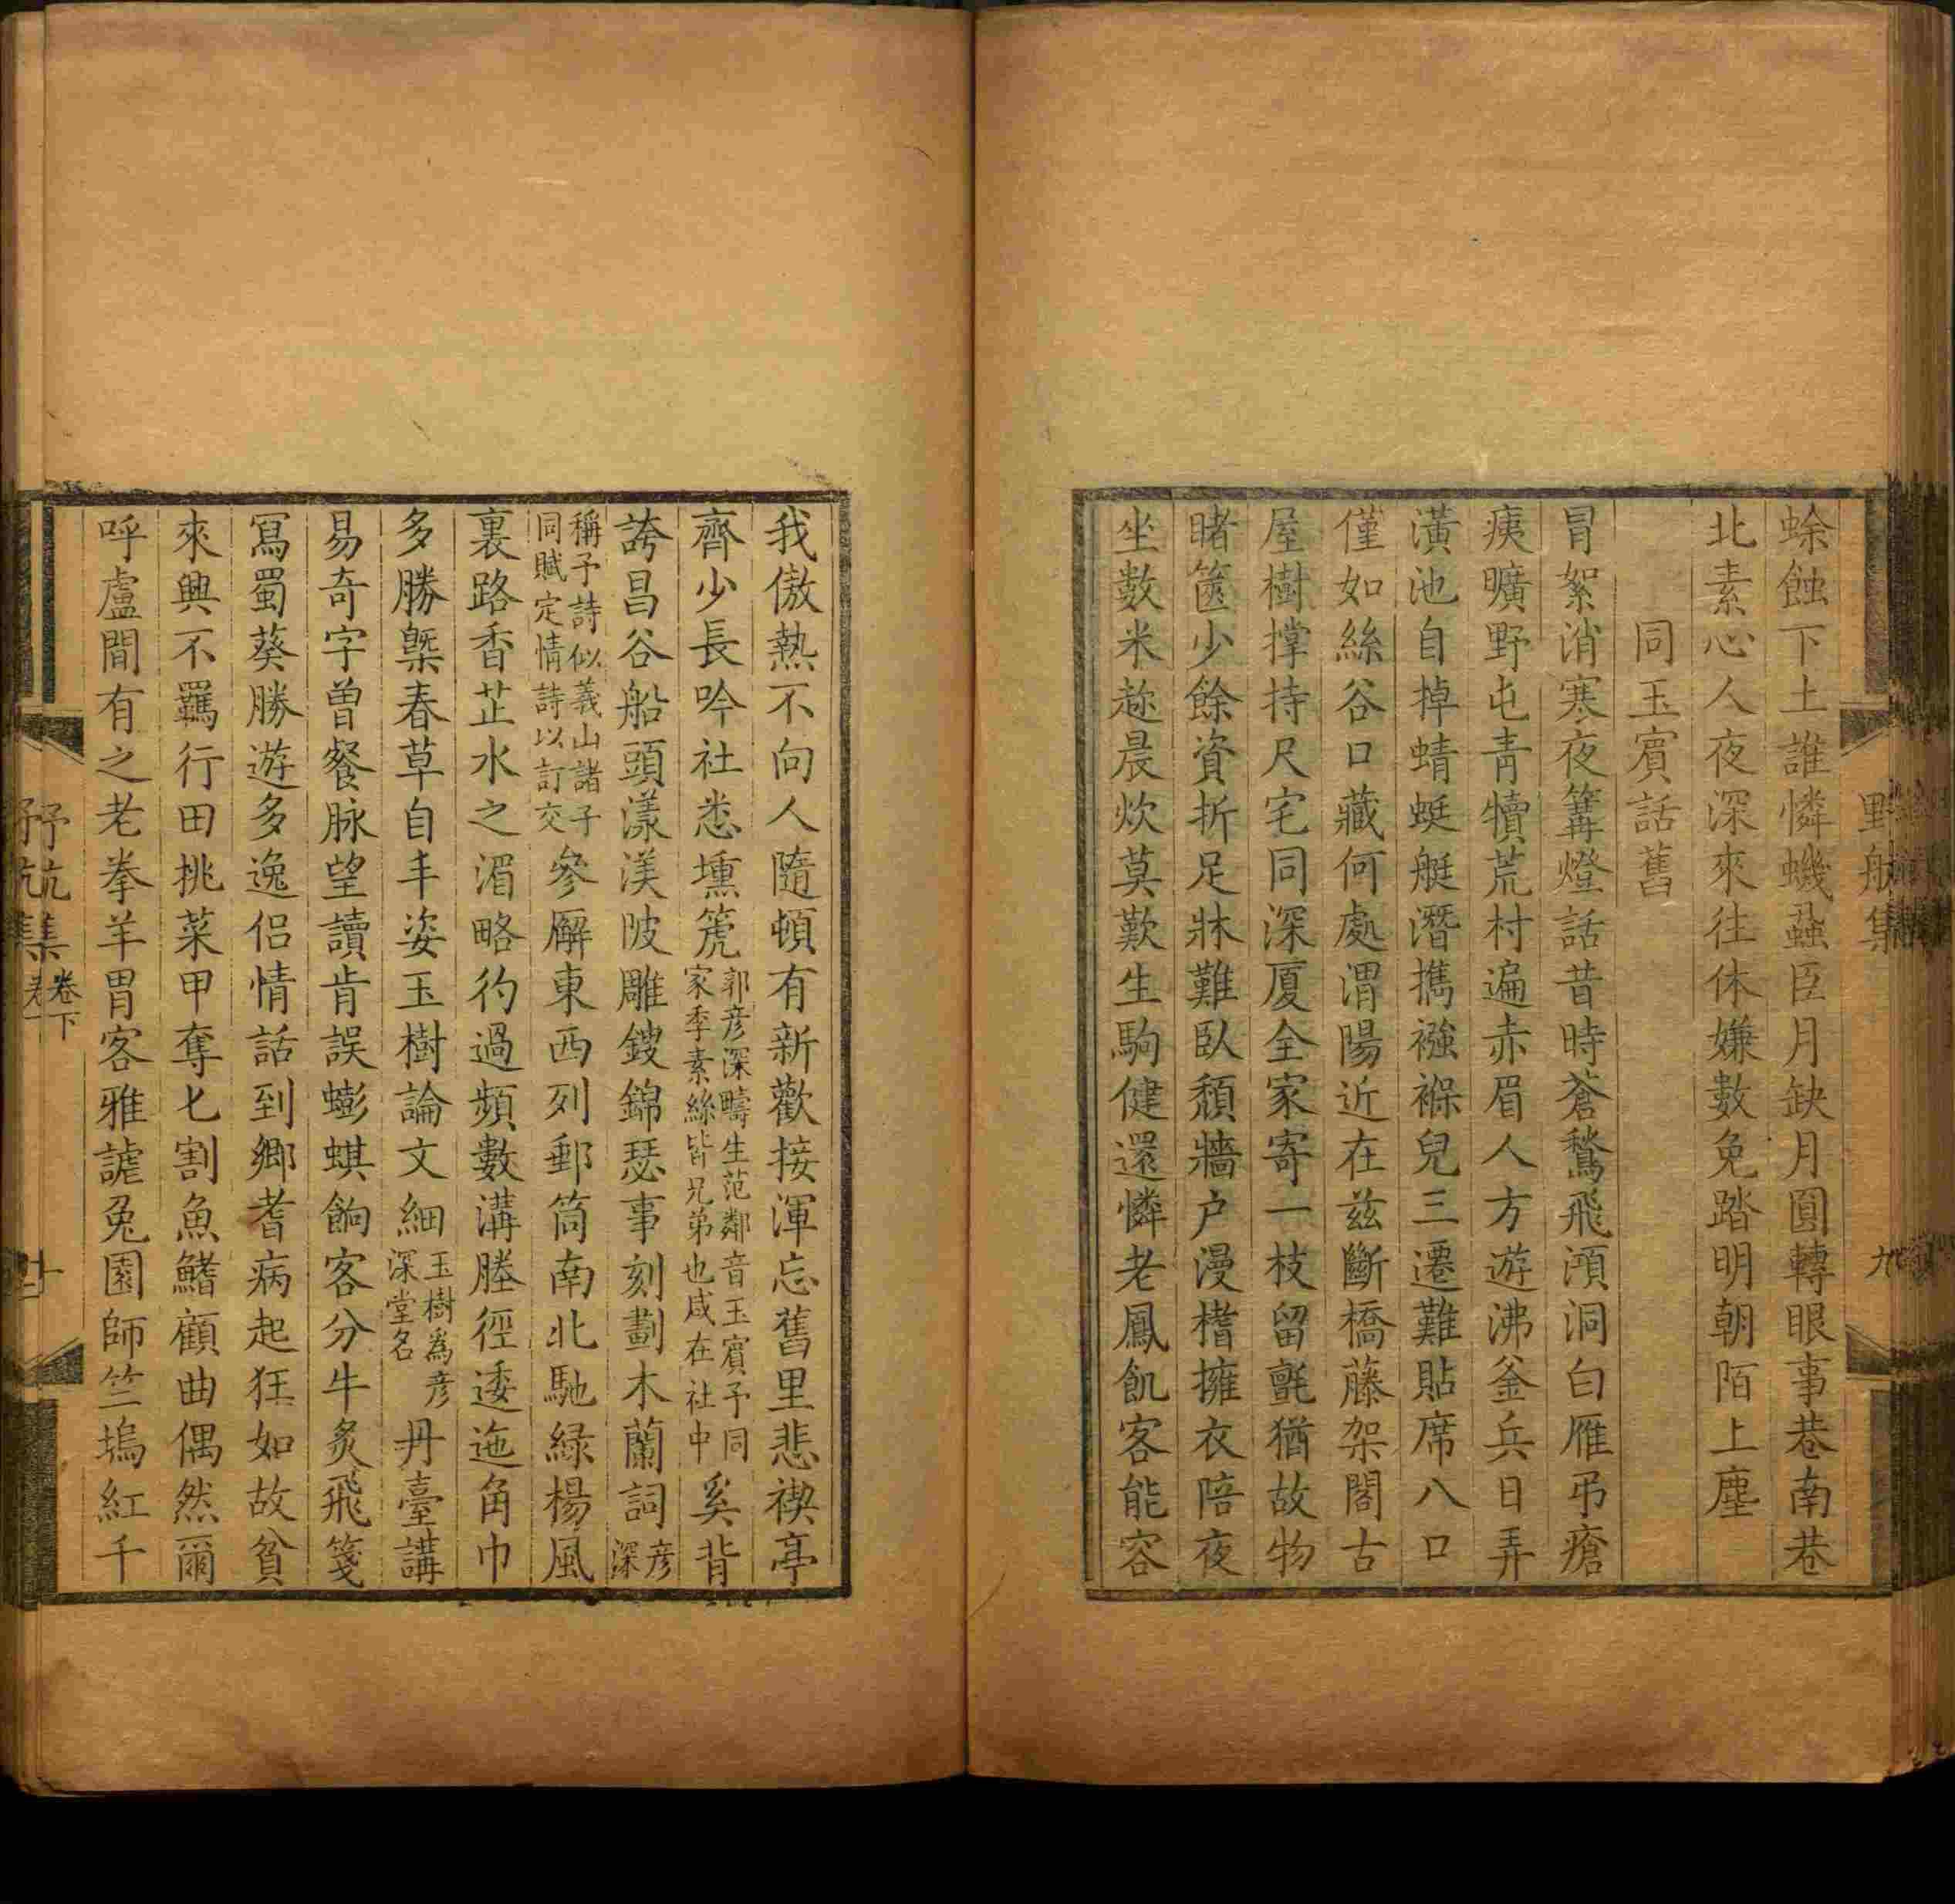 野航集
九
蜍蝕下土誰憐蟣蝨臣月缺月圓轉眼事巷南巷
北素心人夜深來往休嫌數免踏明朝陌上塵
同玉賓話舊
冒絮消寒夜篝燈話昔時蒼鵞飛澒洞白雁弔瘡
痍曠野屯青犢荒村遍赤眉人方遊沸釜兵日弄
潢池自掉蜻蜓艇潛攜襁褓兒三遷難貼席八口
僅如絲谷口藏何處渭陽近在茲斷橋藤架閣古
屋樹撐持尺宅同深廈全家寄一枝留氈猶故物
睹篋少餘資折足牀難臥頹牆户漫榰擁衣陪夜
坐數米趂晨炊莫歎生駒健還憐老鳳飢客能容
我傲熱不向人隨頓有新歡接渾忘舊里悲禊亭
齊少長吟社悉壎箎郭彦深疇生范鄰音玉賓予同
家季素絲皆兄弟也咸在社中奚背
誇昌谷船頭漾渼陂雕鎪錦瑟事刻劃木蘭詞彦
深
稱予詩似義山諸子
同賦定情詩以訂交參廨東西列郵筒南北馳緑楊風
裏路香芷水之湄略彴過頻數溝塍徑逶迤角巾
多勝槩春草自丰姿玉樹論文細玉樹爲彦
深堂名丹臺講
易奇字曾餐脉望讀肯誤蟛蜞餉客分牛炙飛箋
寫蜀葵勝遊多逸侶情話到鄉耆病起狂如故貧
來興不羈行田挑菜甲奪匕割魚鰭顧曲偶然爾
呼盧間有之老拳羊胃客雅謔兔園師竺塢紅千
野航集
卷下